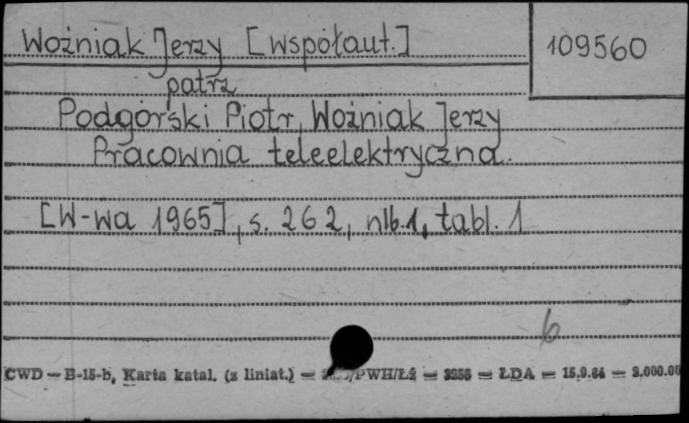 Woźniak Jerzy [współaut.]
109560
patrz
Podgórski Piotr, Woźniak Jerzy
Pracownia teleelektryczna.
[W-wa 1965], s. 262, nlb. 1, tabl. 1
b
CWD — B-15-b, Karta katal. (z liniat.) — /PWH/Łź — 3256 — ŁDA — 15.9.64 — 3.000.00